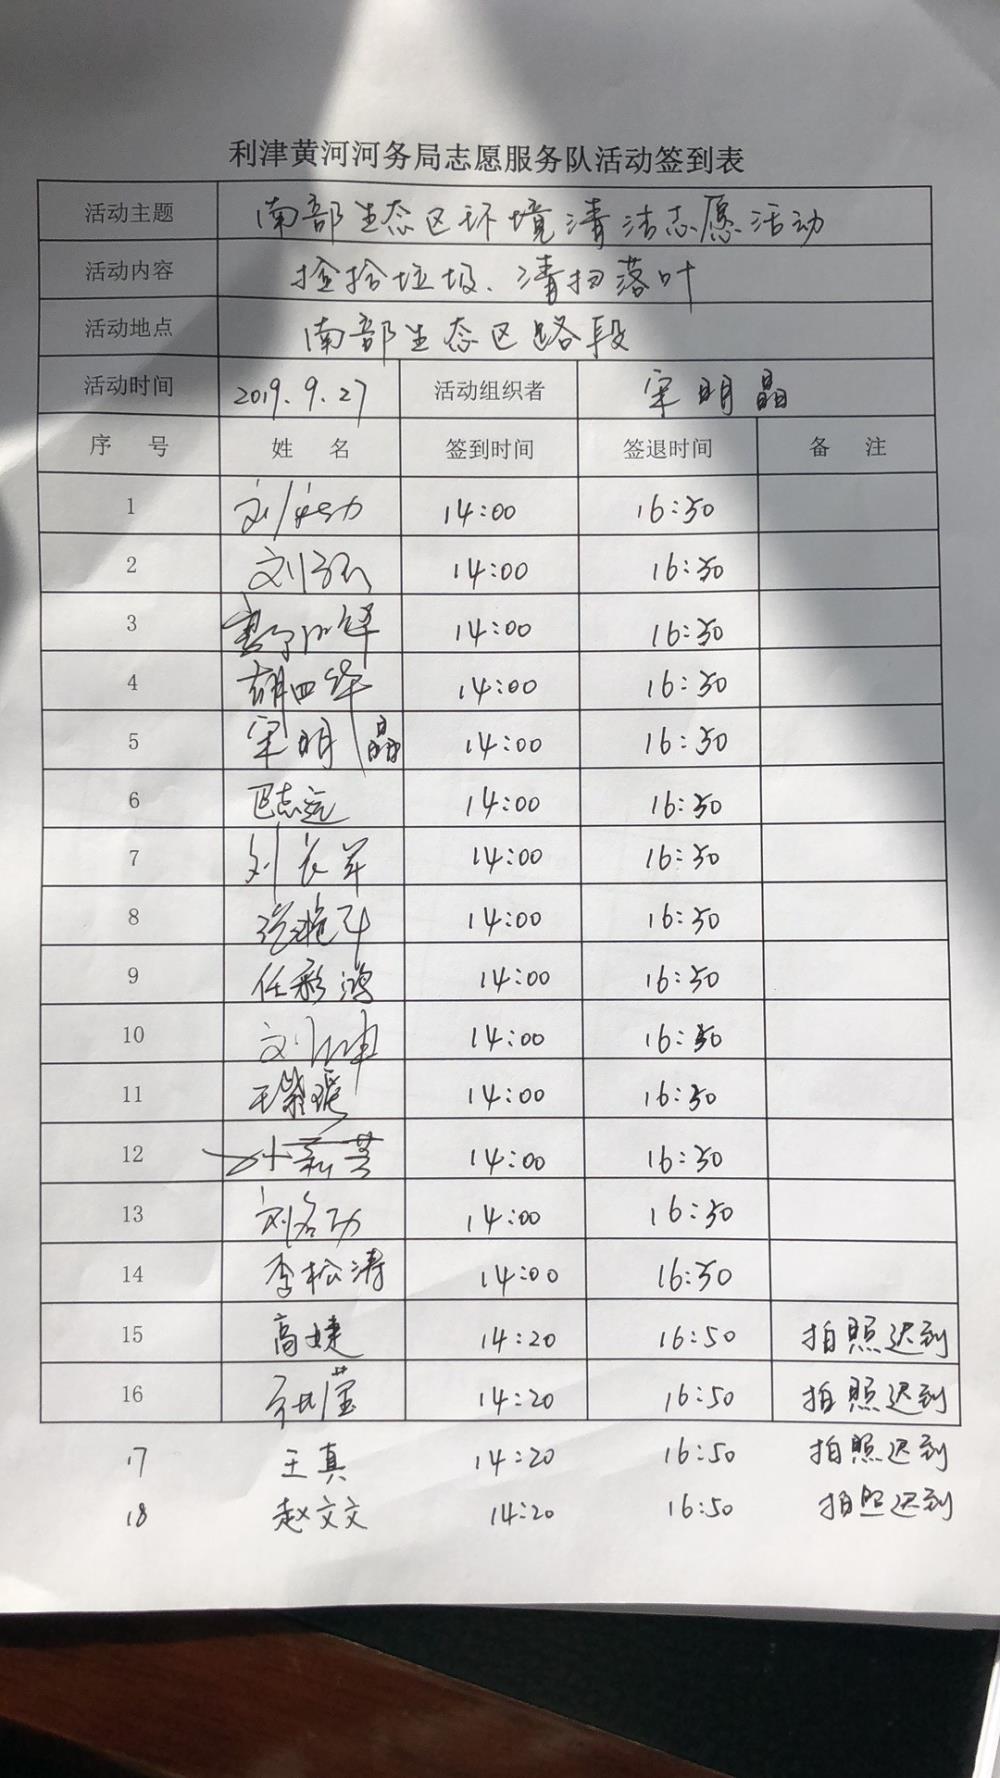 利津黄河河务局志愿服务队活动签到表
活动主题 南部生态区环境清洁志愿活动
活动内容 捡拾垃圾、清扫落叶
活动地点 南部生态区路段
活动时间 2019.9.27 活动组织者 宋明晶
序 号 姓 名 签到时间 签退时间 备 注
1 14:00 16:50
2 刘 14:00 16:50
3 14:00 16:50
4 胡四华 14:00 16:50
5 宋明晶 14:00 16:50
6 志远 14:00 16:50
7 刘长军 14:00 16:50
8 14:00 16:50
9 任彩鸿 14:00 16:50
10 刘坤 14:00 16:50
11 王 14:00 16:50
12 14:00 16:50
13 刘名功 14:00 16:50
14 李松涛 14:00 16:50
15 高婕 14:20 16:50 拍照迟到
16 莹 14:20 16:50 拍照迟到
17 王真 14:20 16:50 拍照迟到
18 赵文文 14:20 16:50 拍照迟到